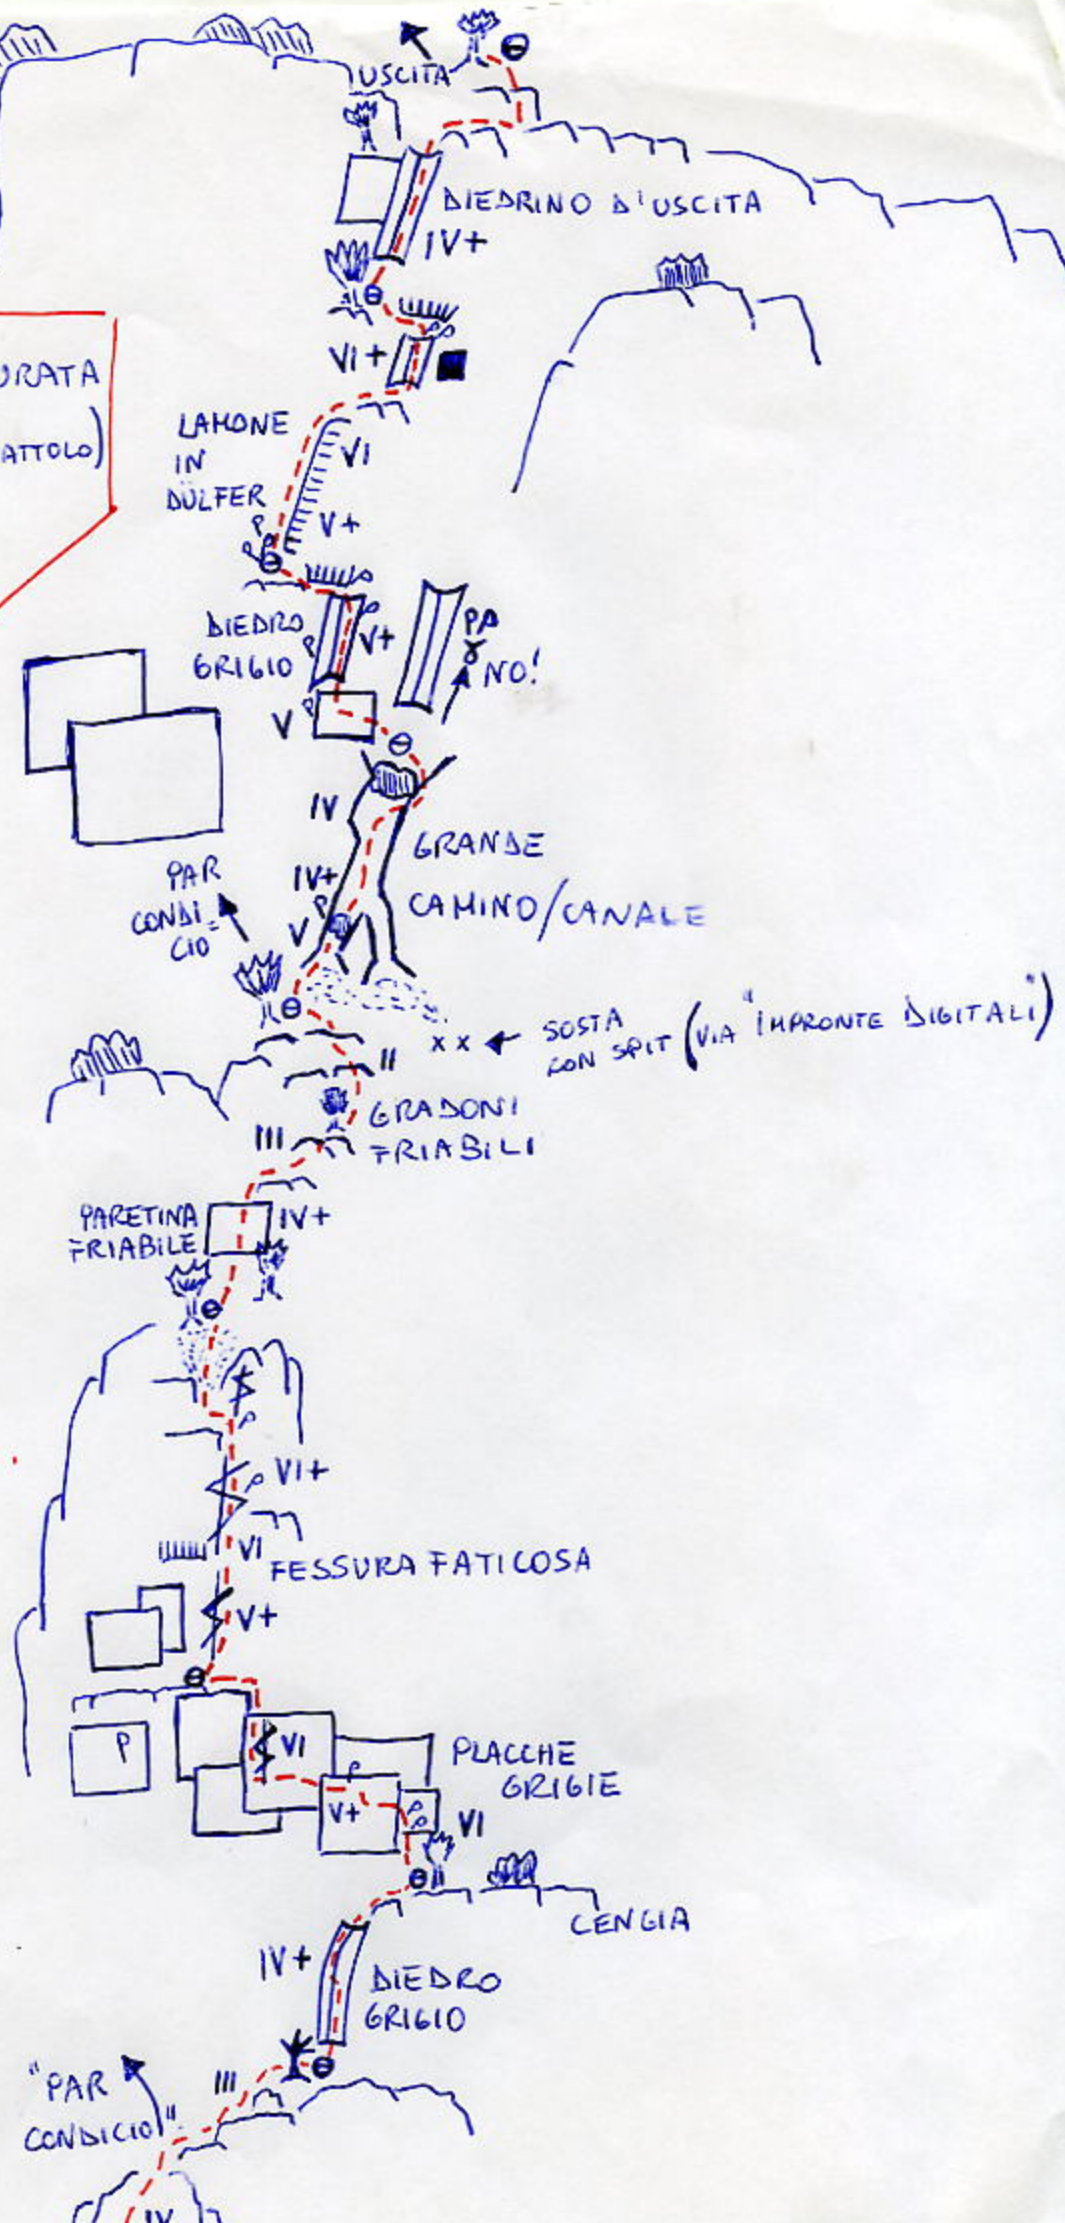 USCITA
DIEDRINO D'USCITA
IV+
VI+
URATA
ATTOLO)
LAMONE
IN
DÜLFER
VI
P
V+
P
DIEDRO
GRIGIO
P
V+
PA
NO!
V
P
IV
GRANDE
CAMINO/CANALE
IV+
P
V
PAR
CONDI=
CIO
x x
SOSTA
CON SPIT (VIA "IMPRONTE DIGITALI")
II
GRADONI
FRIABILI
III
PARETINA
FRIABILE
IV+
P
P
VI+
VI
FESSURA FATICOSA
V+
P
VI
PLACCHE
GRIGIE
P
V+
P
P
VI
CENGIA
IV+
DIEDRO
GRIGIO
III
"PAR
CONDICIO"
IV